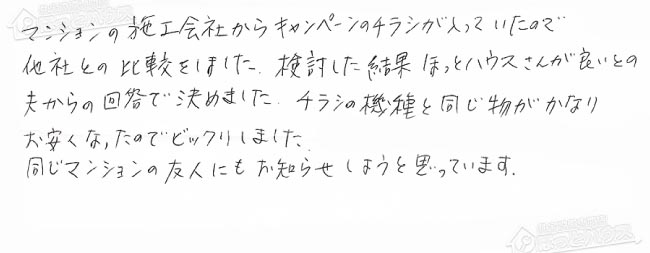 マンションの施工会社からキャンペーンのチラシが入っていたので
他社との比較をしました。検討した結果ほっとハウスさんが良いとの
夫からの回答で決めました。チラシの機種と同じ物がかなり
お安くなったのでビックリしました。
同じマンションの友人にもお知らせしようと思っています。
ほっとハウス